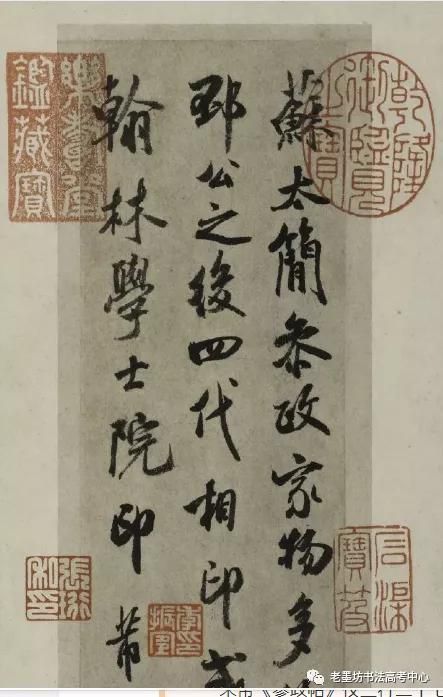 蘇太簡參政家物多
邳公之後四代相印或
翰林學士院印 芾
乾隆御覽之寶
樂壽堂鑑藏寶
石渠寶笈
張珩私印
老墨坊书法高考中心